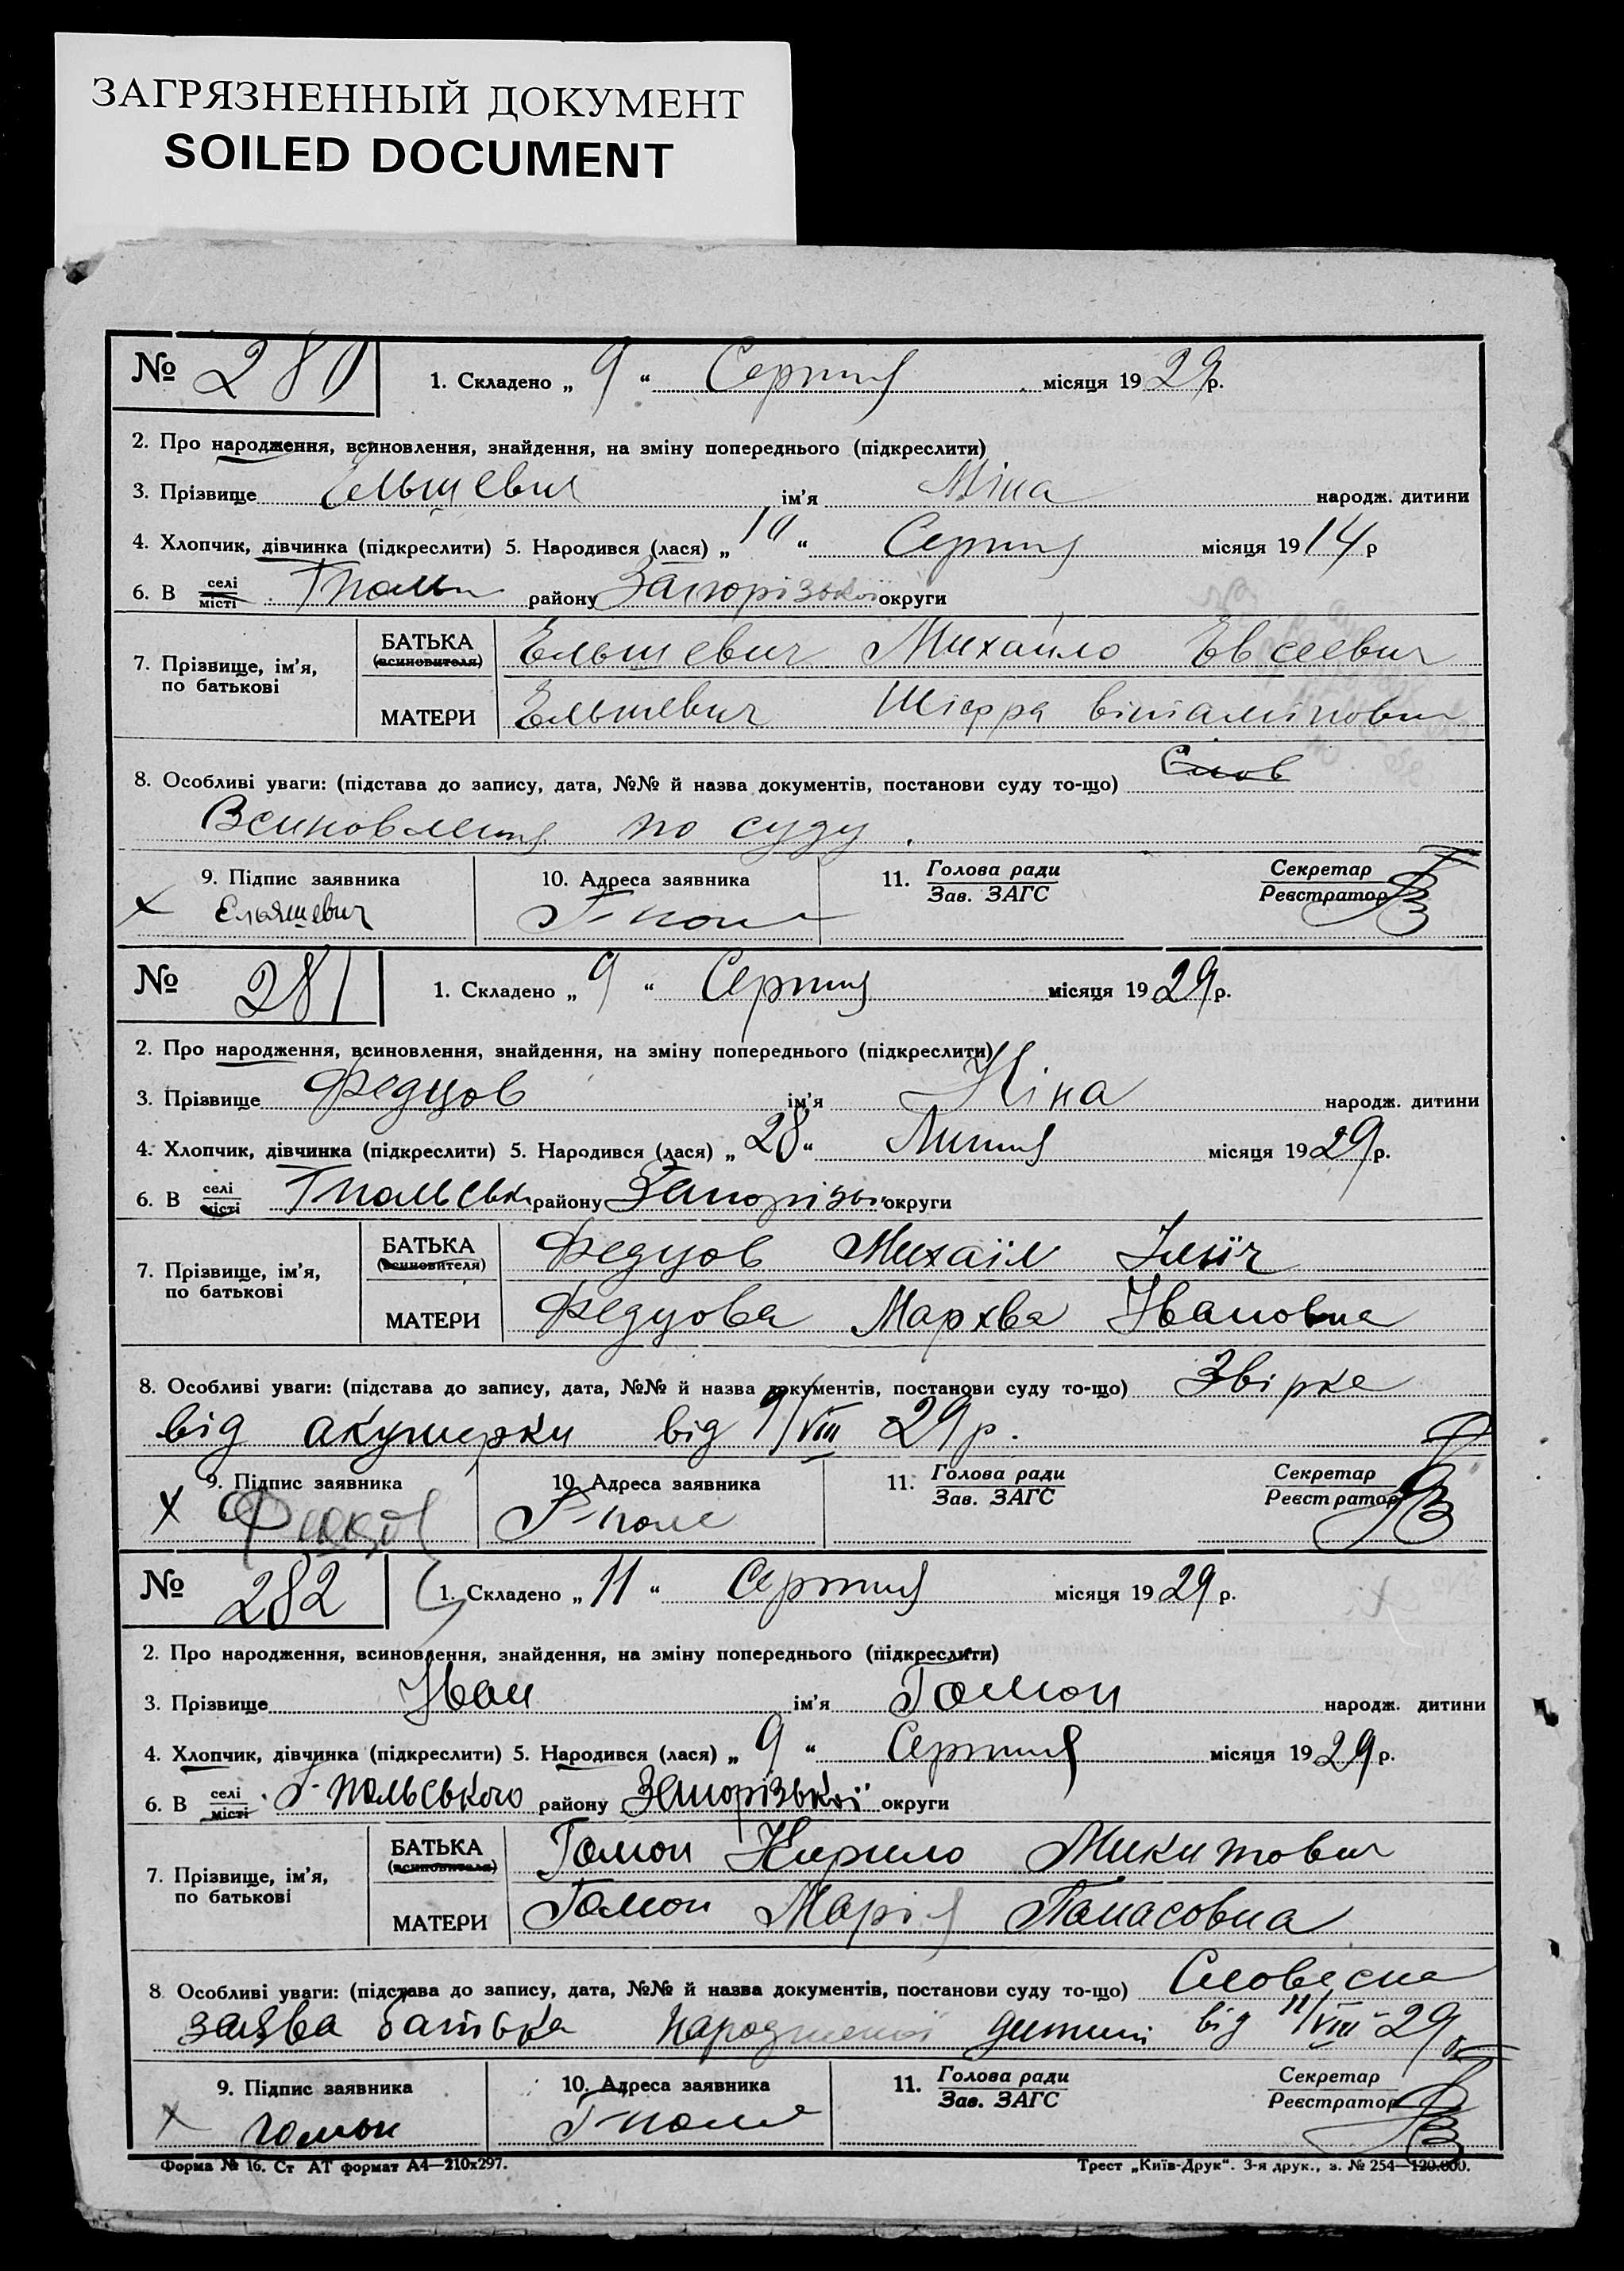 ЗАГРЯЗНЕННЫЙ ДОКУМЕНТ
SOILED DOCUMENT
№ 280 1. Складено „ 9 “ Серпня місяця 1929р.
2. Про народження, всиновлення, знайдення, на зміну попереднього (підкреслити)
3. Прізвище Ельшевич ім’я Міна народж. дитини
4. Хлопчик, дівчинка (підкреслити) 5. Народився (лася) „ 10 “ Серпня місяця 1914 р
6. В селі місті району Запорізької округи
7. Прізвище, ім’я, по батькові БАТЬКА (всиновителя) Ельшевич Михайло Евсеевич
МАТЕРИ Ельшевич Шіфра
8. Особливі уваги: (підстава до запису, дата, №№ й назва документів, постанови суду то-що) Слов
Всиновлення по суду.
9. Підпис заявника 10. Адреса заявника 11. Голова ради Зав. ЗАГС Секретар Реєстратор
х Ельяшевич Г-поле
№ 281 1. Складено „ 9 “ Серпня місяця 1929р.
2. Про народження, всиновлення, знайдення, на зміну попереднього (підкреслити)
3. Прізвище Федцов ім’я Ніна народж. дитини
4. Хлопчик, дівчинка (підкреслити) 5. Народився (лася) „ 28 “ Липня місяця 1929р.
6. В селі місті Гпольськ району Запорізьк округи
7. Прізвище, ім’я, по батькові БАТЬКА (всиновителя) Федцов Михаїл Ілліч
МАТЕРИ Федцова Мархва Івановна
8. Особливі уваги: (підстава до запису, дата, №№ й назва документів, постанови суду то-що) Звірка
від акушерки від 9/VIII 29 р.
9. Підпис заявника 10. Адреса заявника 11. Голова ради Зав. ЗАГС Секретар Реєстратор
х Г-поле
№ 282 1. Складено „ 11 “ Серпня місяця 1929 р.
2. Про народження, всиновлення, знайдення, на зміну попереднього (підкреслити)
3. Прізвище Іван ім’я Гамон народж. дитини
4. Хлопчик, дівчинка (підкреслити) 5. Народився (лася) „ 9 “ Серпня місяця 1929 р.
6. В селі місті Г-Польського району Запорізької округи
7. Прізвище, ім’я, по батькові БАТЬКА (всиновителя) Гамон Кирило Микитович
МАТЕРИ Гамон Марія Панасовна
8. Особливі уваги: (підстава до запису, дата, №№ й назва документів, постанови суду то-що) Словесна
заява батька народженої дитини від 11/VIII-29р
9. Підпис заявника 10. Адреса заявника 11. Голова ради Зав. ЗАГС Секретар Реєстратор
х Гамон Г-поле
Форма № 16. Ст АТ формат А4—210x297. Трест „Київ-Друк“. 3-я друк., з. № 254—120.000.